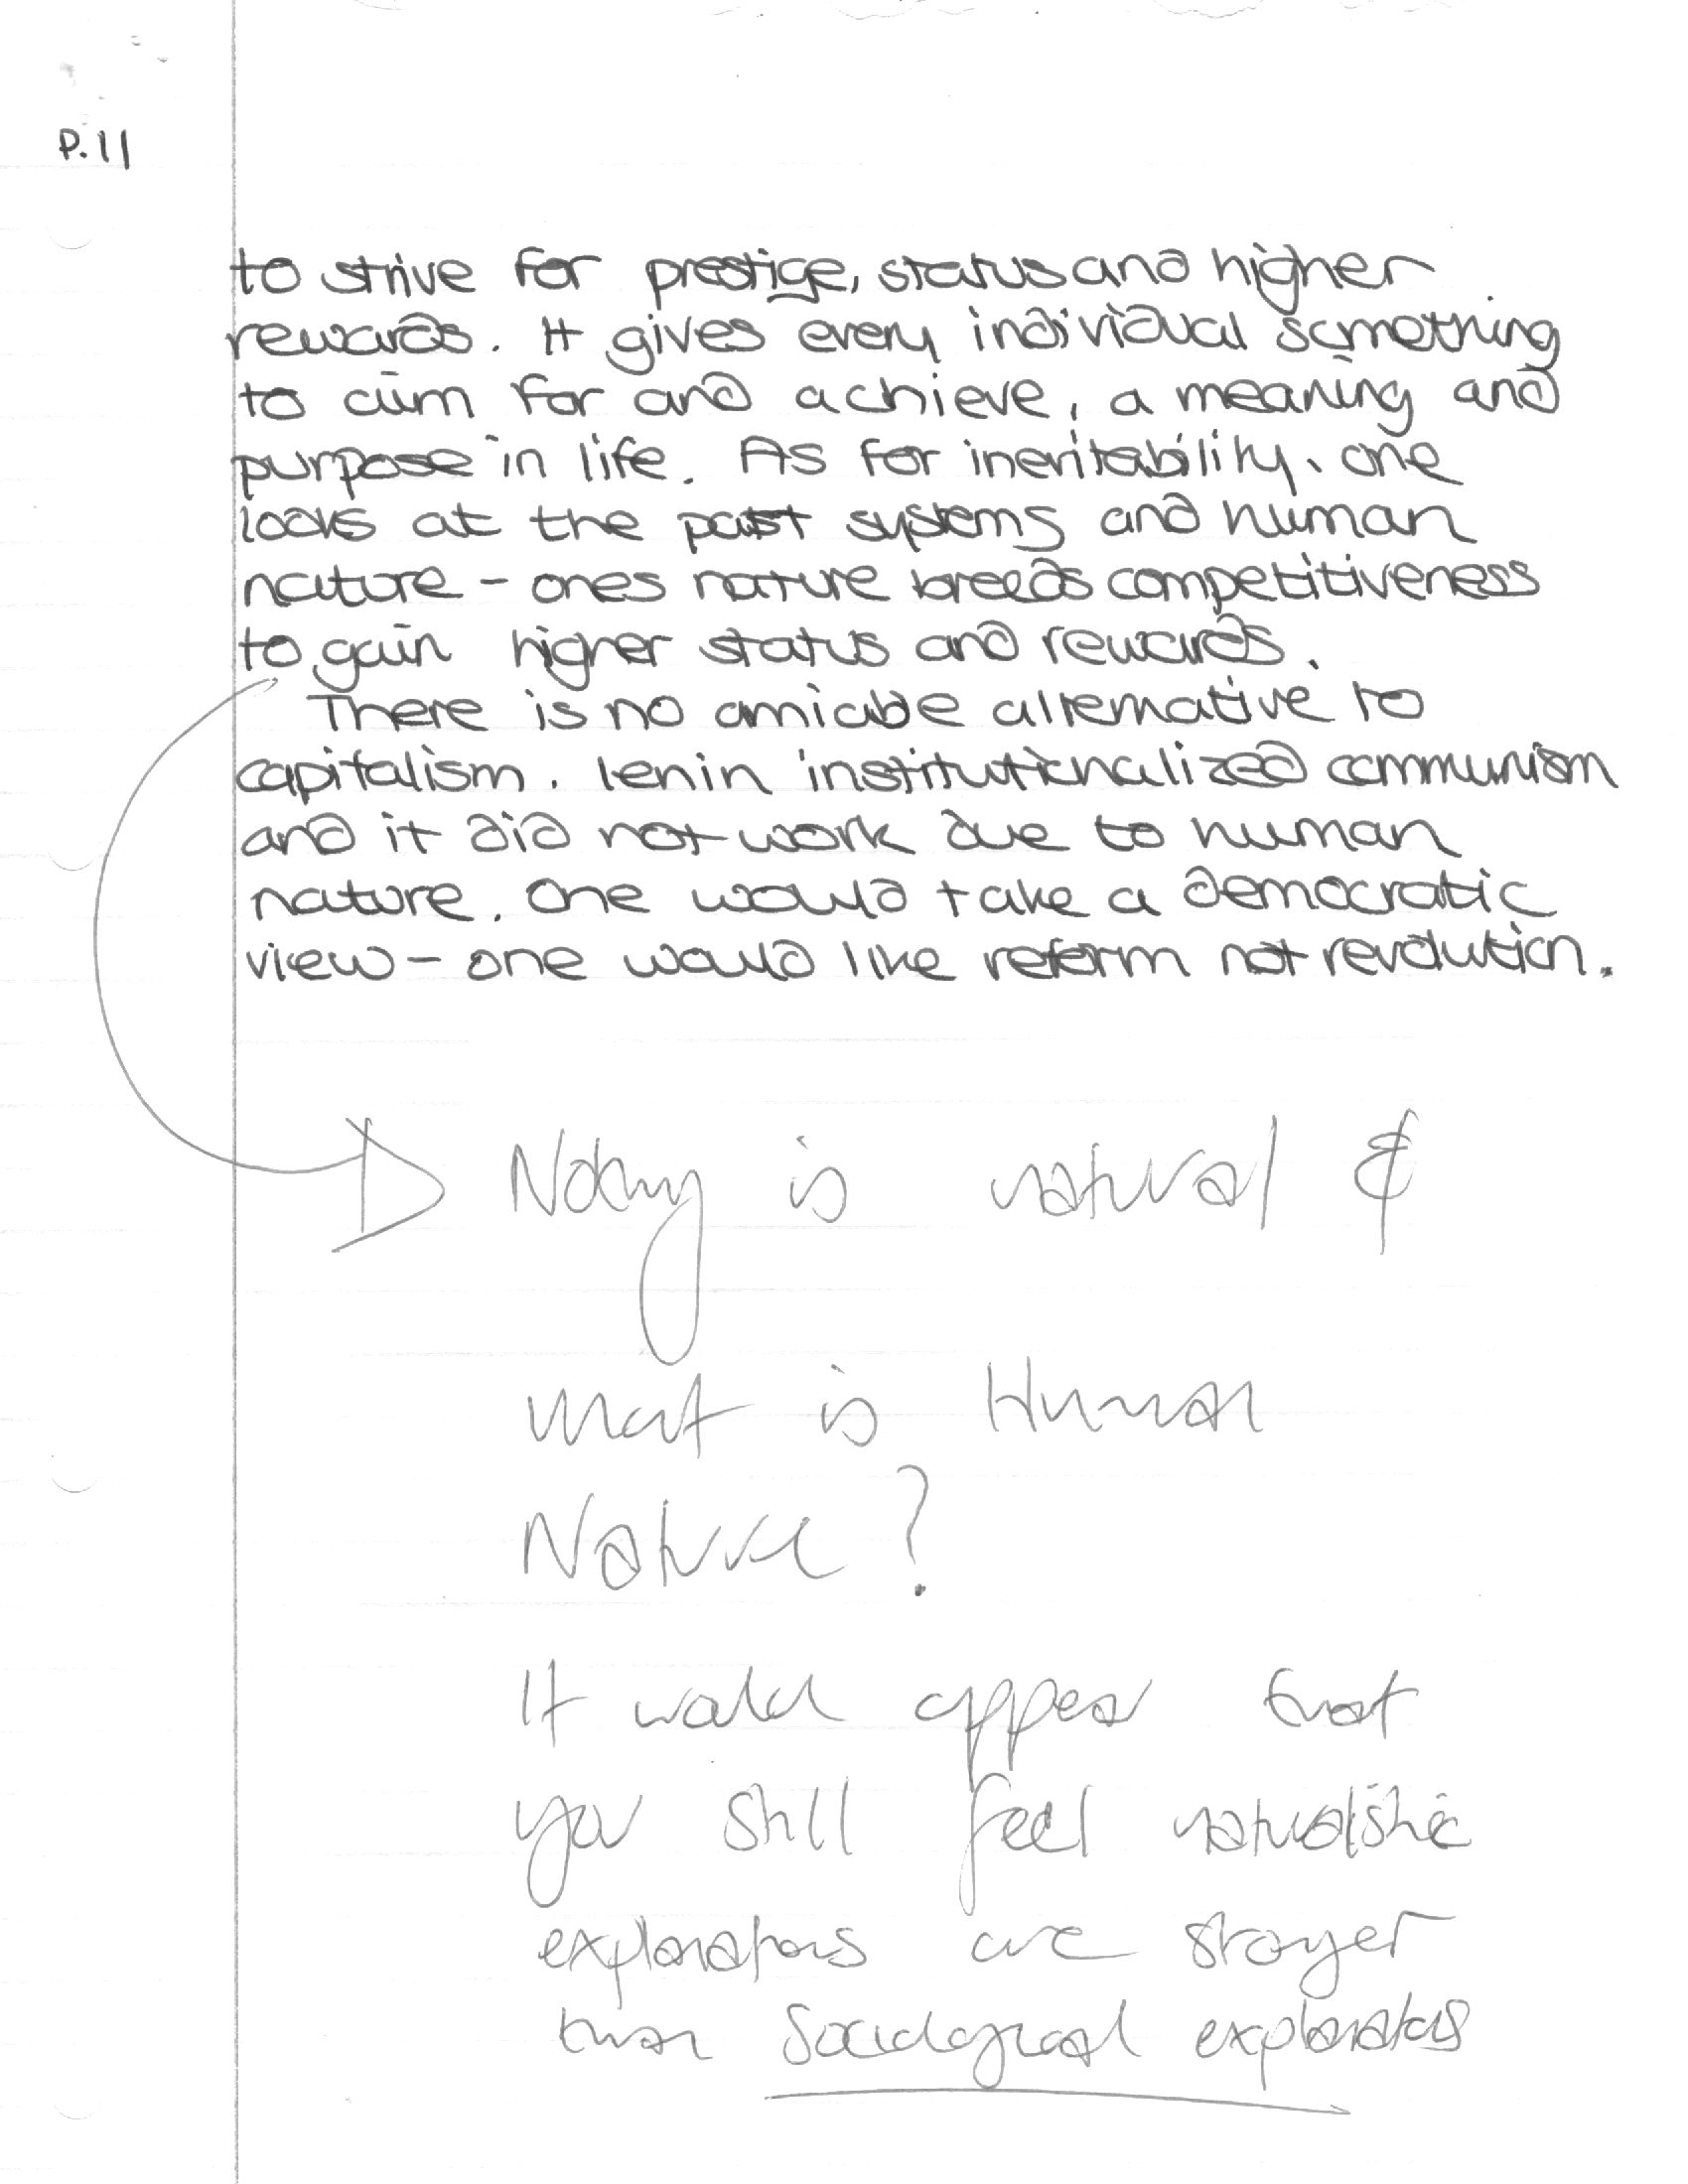 P.11
to strive for prestige, status and higher
rewards. It gives every individual something
to aim for and achieve, a meaning and
purpose in life. As for inevitability, one
looks at the past systems and human
nature - ones nature breeds competitiveness
to gain higher status and rewards.
There is no amicable alternative to
capitalism. Lenin institutionalized communism
and it did not work due to human
nature. One would take a democratic
view - one would like reform not revolution.
Nothing is natural &
what is Human
Nature?
It would appear that
you still feel naturalistic
explanations are stronger
than Sociological explanations